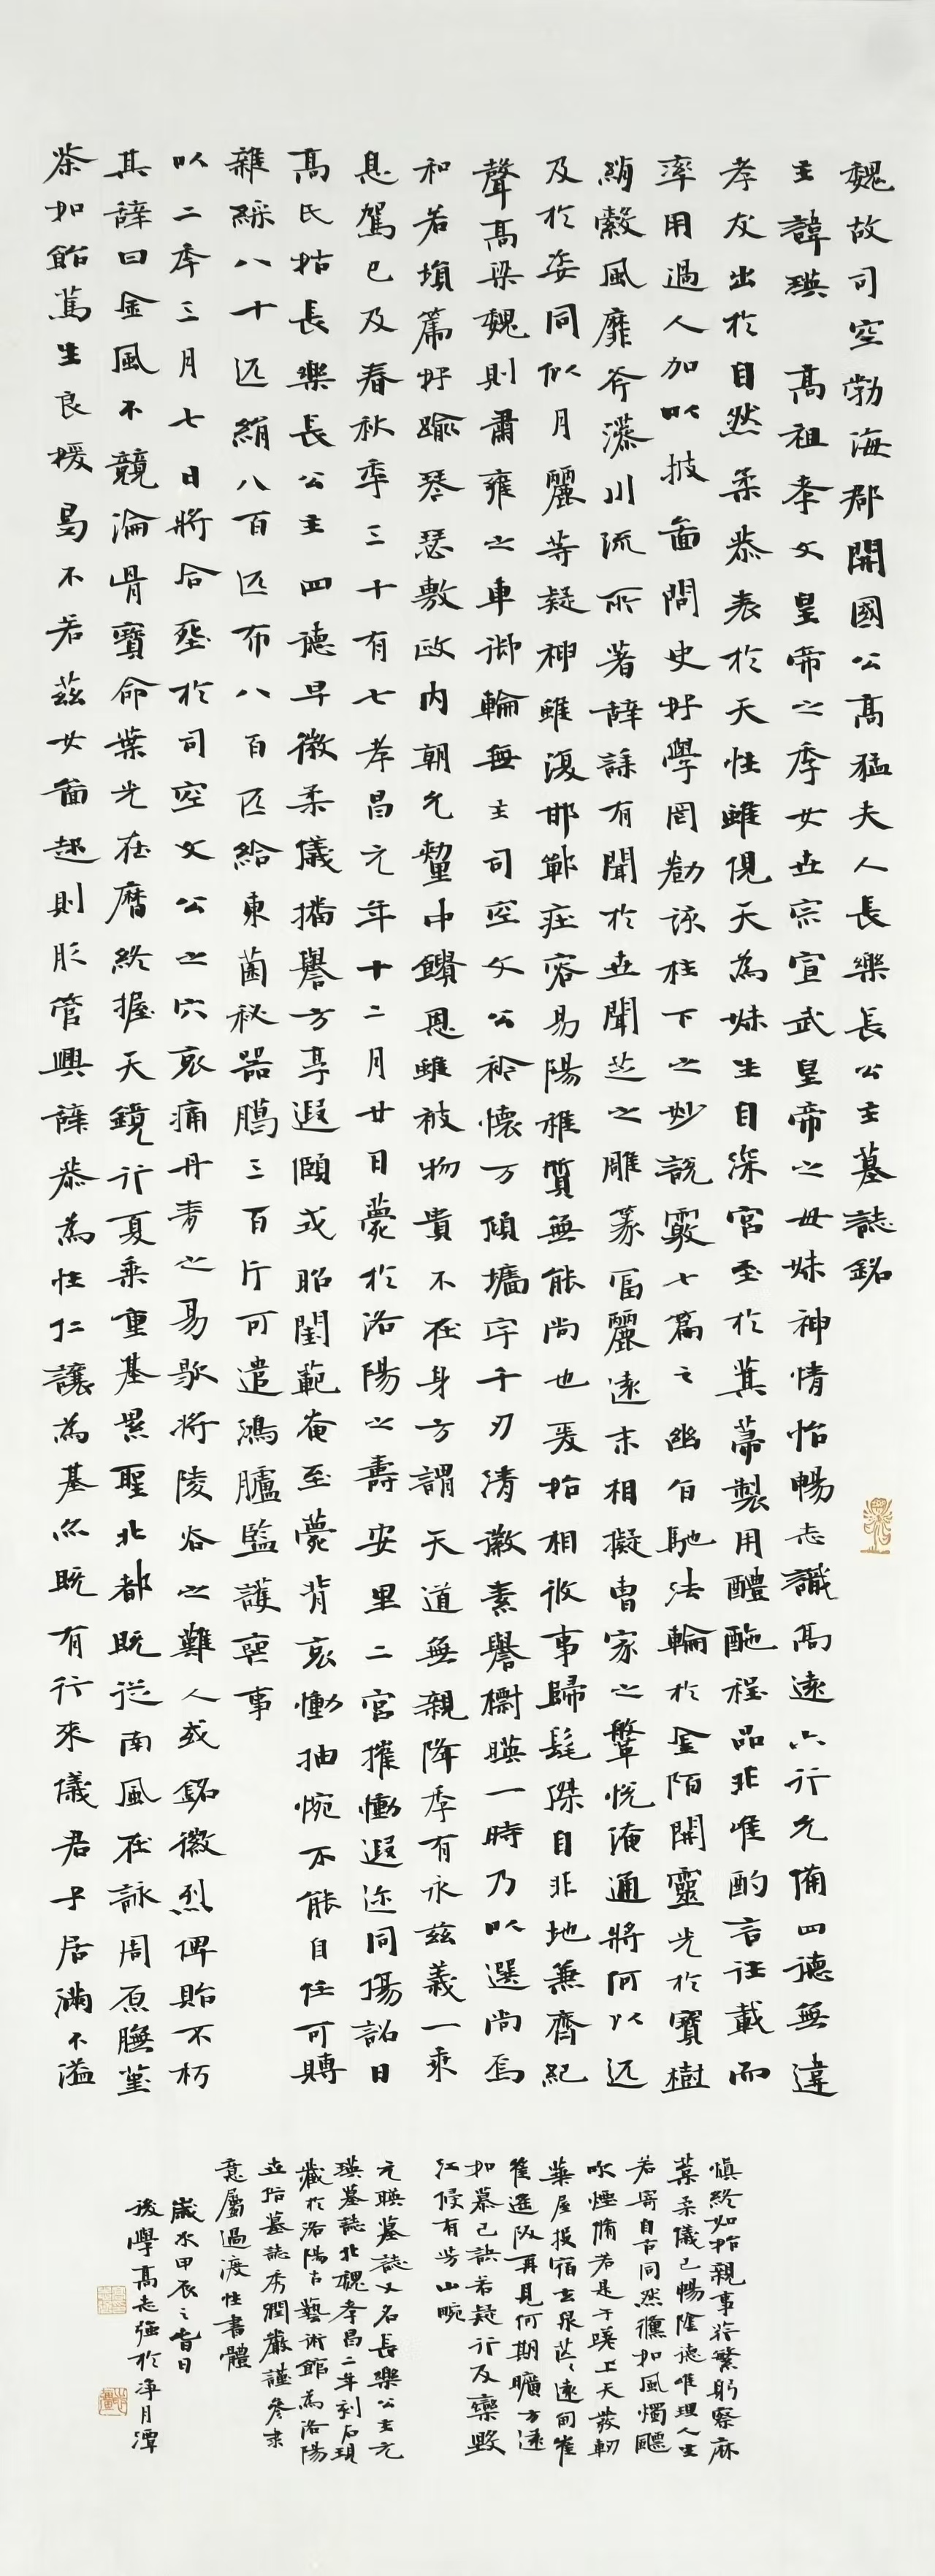 魏故司空勃海郡開國公高猛夫人長樂長公主墓誌銘
主諱瑛 高祖孝文皇帝之季女世宗宣武皇帝之母妹神情怡暢志識高遠六行允備四德無違
孝友出於自然柔恭表於天性雖俔天為妹生自深宮至於箕帚製用醴酏程品非唯酌言往載而
率用過人加以披圖問史好學罔勌該柱下之妙說覈七篇之幽旨馳法輪於金陌開靈光於寶樹
綃縠風靡斧藻川流所著辭誄有聞於世聞芝之雕篆富麗遠未相擬曹家之鞶帨淹通將何以远
及於姿同似月麗等凝神雖復邯鄲莊容易陽稚質無能尚也爰始相攸事歸髦傑自非地兼齊紀
聲高梁魏則肅雍之車御輪無主司空文公衿懷万傾墻宇千刃清徽素譽㯽暎一時乃以選尚焉
和若塤篪好踰琴瑟敷政內朝允釐中饋恩雖被物貴不在身方謂天道無親降季有永茲義一乘
息駕已及春秋季三十有七孝昌元年十二月廿日薨於洛陽之壽安里二宮摧慟遐迩同傷詔曰
高氏姑長樂長公主四德早徽柔儀播譽方享遐頤式昭閨範奄至薨背哀慟抽惋不能自任可賻
雜綵八十匹絹八百匹布八百匹給東園秘器臈三百斤可遣鴻臚監護喪事
以二季三月七日將合葬於司空文公之穴哀痛丹青之易歇將陵谷之難人或銘徽烈俾貽不朽
其辭曰金風不競淪胥寶命葉光在曆終握天鏡行夏乘重基累聖北都既從南風在詠周原膴堇
荼如飴篤生良援曷不若茲女圖起則肜管興辭恭為性仁讓為基爾既有行來儀君子居滿不溢
慎終如始親事苹蘩躬察麻
葉柔儀已暢陰德唯理人生
若寄自古同然儵如風燭飃
吹煙脩若是于嗟上天發軔
華屋投宿玄泉茫〻遠甸崔
崔遥阪再見何期曠方遠
如慕已訣若疑行及藥野
江候有芳山畹
元暎墓誌又名長樂公主元
瑛墓誌北魏孝昌二年刻石現
藏於洛陽古藝術館為洛陽
出缶墓誌秀潤嚴謹參隶
意屬過渡性書體
歲次甲辰之旹日
後學高志強於淨月潭